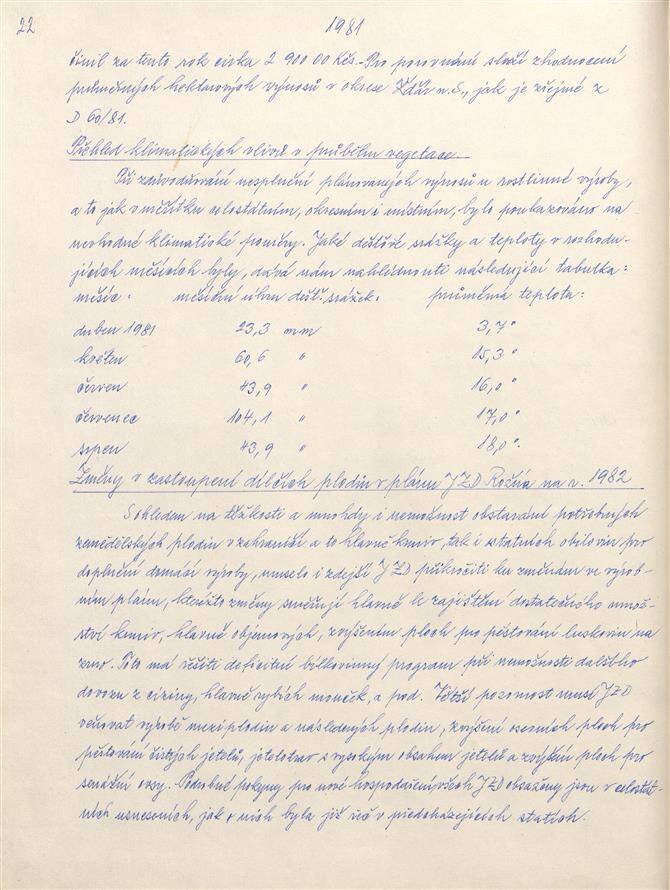 22 1981
činil za tento rok cirka 2 900 00 Kčs.- Pro porovnání slouží zhodnocení
průměrných hektarových výnosů v okrese Žďár n. S., jak je zřejmé z
D 60/81.
Přehled klimatických vlivů v průběhu vegetace.
Při zdůvodňování nesplnění plánovaných výnosů u rostlinné výroby,
a to jak v měřítku celostátním, okresním i místním, bylo poukazováno na
nevhodné klimatické poměry. Jaké dešťové srážky a teploty v rozhodu-
jících měsících byly, dává nám nahlédnouti následující tabulka:
měsíc: měsíční úhrn dešť. srážek: průměrná teplota:
duben 1981 23,3 mm 3,7°
květen 60,6 " 15,3°
červen 43,9 " 16,0°
červenec 104,1 " 17,0°
srpen 43,9 " 18,0°.
Změny v zastoupení dílčích plodin v plánu JZD Rožná na r. 1982
S ohledem na těžkosti a mnohdy i nemožnost obstarání potřebných
zemědělských plodin v zahraničí a to hlavně krmiv, tak i ostatních obilovin pro
doplnění domácí výroby, muselo i zdejší JZD přikročiti ku změnám ve výrob-
ním plánu, kterižto změny směřují hlavně k zajištění dostatečného množ-
ství krmiv, hlavně objemových, zvýšením ploch pro pěstování luskovin na
zrno. Toto má řešiti deficitní bílkovinný program při nemožnosti dalšího
dovozu z ciziny, hlavně rybích mouček, a pod. Větší pozornost musí JZD
věnovat výrobě meziplodin a následných plodin, zvýšení osevních ploch pro
pěstování čistých jetelů, jetelotrav s vysokým obsahem jetelů a zvýšení ploch pro
senážní ovsy. Podrobné pokyny pro nové hospodaření všech JZD obsaženy jsou v celostát-
ních usneseních, jak o nich byla již řeč v předcházejících statích.